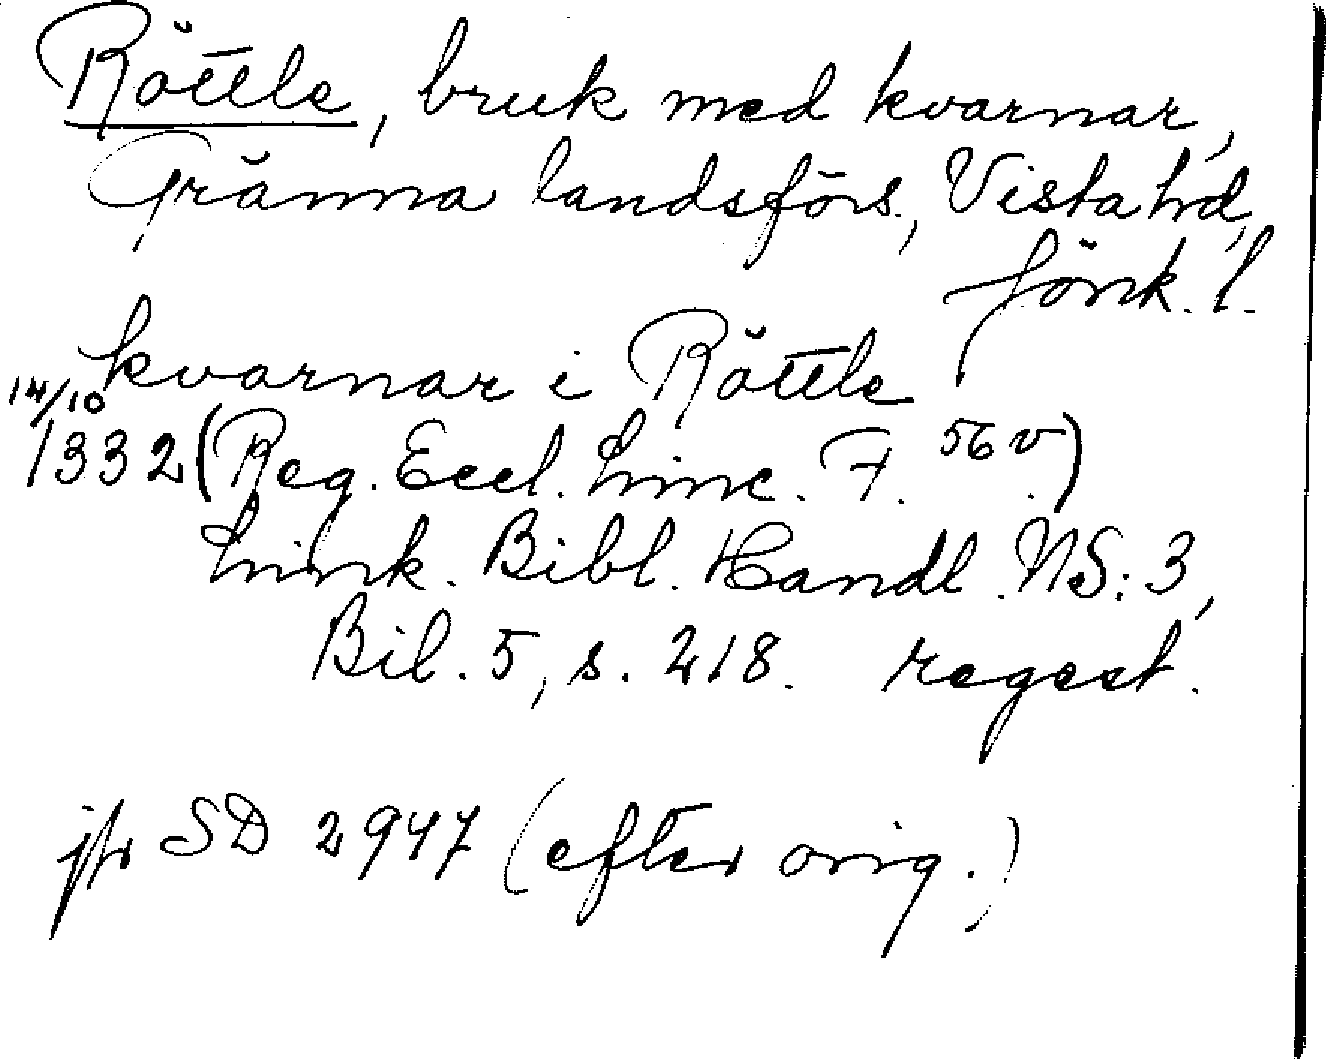 Röttle, bruk med kvarnar,
Gränna landsförs., Vista hd,
Jönk. l.
kvarnar i Röttle
14/10
1332 (Reg. Eccl. Linc. F. 56 v.)
Link. Bibl. Handl. NS: 3,
Bil. 5, s. 218. regest.
jfr SD 2947 (efter orig.)